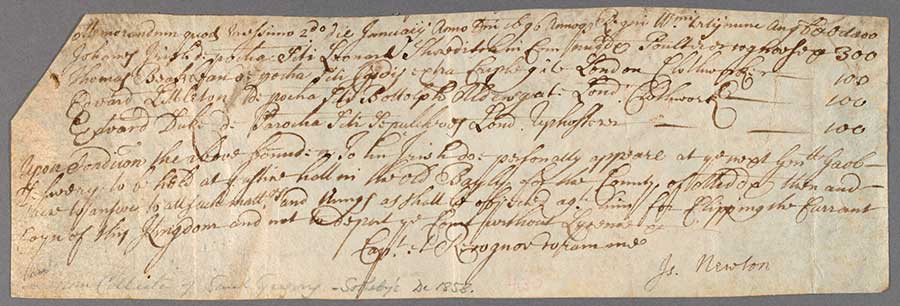 Memorandum quod vicessimo 2do die Januarij Anno Dni 1696 Annoq RRegni Wmi Tertij nunc Angl
Johannes de pochia Sti Leonard Shoreditch in Com Poulterer recognoset 300
Thomas de pochia Sti Egidij extra Criplegate London Clothworker — 100
Edward Littleton de pochia Sti Bottolph Aldersgate Lond Clothworker — 100
Edward Duke de Parochia Sti Sepulchres Lond Upholsterer — — 100
Upon Condicion the above bounden John doe personally appeare at ye next Genll Gaole
delivery to be held at Justice hall in the old Bayly for the County of Middx then and
there to answer to all such matters and things as shall be objected agt him for Clipping the Currant
Coyn of this Kingdom and not depart ye Court without Lycence
Capt et Recognit coram me
Is. Newton
Collection of - Sotheby's De 1858.